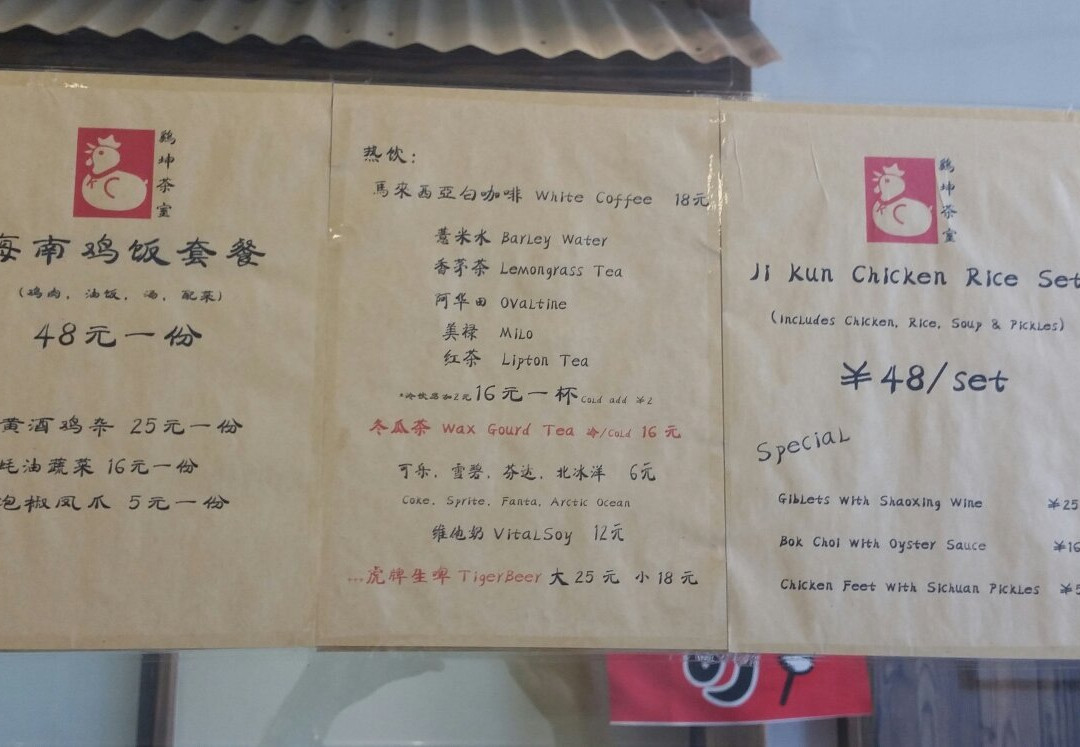 鷄
坤
茶
室
海南鸡饭套餐
(鸡肉, 油饭, 汤, 配菜)
48元一份
黄酒鸡杂 25元一份
蚝油蔬菜 16元一份
泡椒凤爪 5元一份
热饮:
馬來西亞白咖啡 White Coffee 18元
薏米水 Barley Water
香茅茶 Lemongrass Tea
阿华田 Ovaltine
美禄 Milo
红茶 Lipton Tea
*冷饮另加2元 16元一杯 Cold add ¥2
冬瓜茶 Wax Gourd Tea 冷/Cold 16 元
可乐, 雪碧, 芬达, 北冰洋 6元
Coke, Sprite, Fanta, Arctic Ocean
维他奶 VitalSoy 12元
...虎牌生啤 TigerBeer 大 25 元 小 18 元
鷄
坤
茶
室
Ji Kun Chicken Rice Set
(includes Chicken, Rice, Soup & Pickles)
¥48/set
Special
Giblets with Shaoxing Wine ¥25
Bok Choi with Oyster Sauce ¥16
Chicken Feet with Sichuan Pickles ¥5